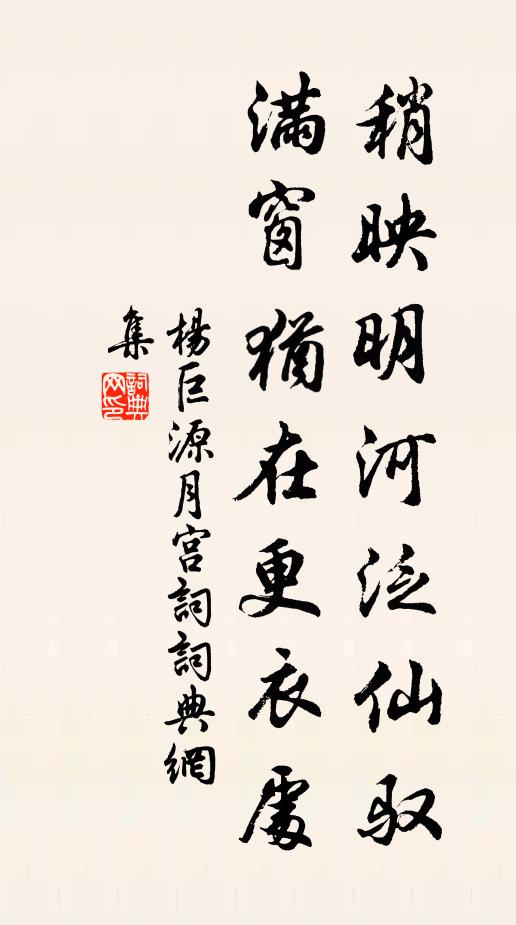 稍映明河泛仙驭
满窗犹在更衣处
杨巨源月宫詞詞典網
集
詞典
网印